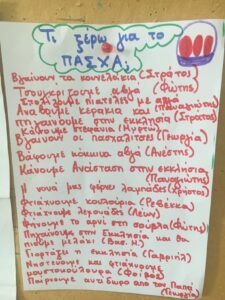 Τι ξέρω για το
ΠΑΣΧΑ;
Βγαίνουν τα κουνελάκια (Στράτος)
Τσουγκρίζουμε αβγά (Φώτης)
Στολίζουμε με αβγά
Ανάβουμε κεράκια και (Παναγιώτης)
πηγαίνουμε στην εκκλησία (Στράτος)
Κάνουμε στεφάνια (Μυρτώ)
Βγαίνουν οι πασχαλίτσες (Γεωργία)
Βάφουμε κόκκινα αβγά (Ανέστης)
Κάνουμε Ανάσταση στην εκκλησία
(Παναγιώτης)
Η νονά μας φέρνει λαμπάδες (Χρήστος)
Φτιάχνουμε κουλούρια (Ρεβέκκα)
Φτιάχνουμε (Λένα)
Ψήνουμε το αρνί στη σούβλα (Φώτης)
Πηγαίνουμε στην Εκκλησία και θα
πιούμε μελάκι (Βασ. Η.)
Γιορτάζει η εκκλησία (Γαβριήλ)
Νηστεύουμε και φτιάχνουμε
μουστοκούλουρα (Φοίβος)
Παίρνουμε αυτά δώρο από τον Παπά
(Γεωργία)